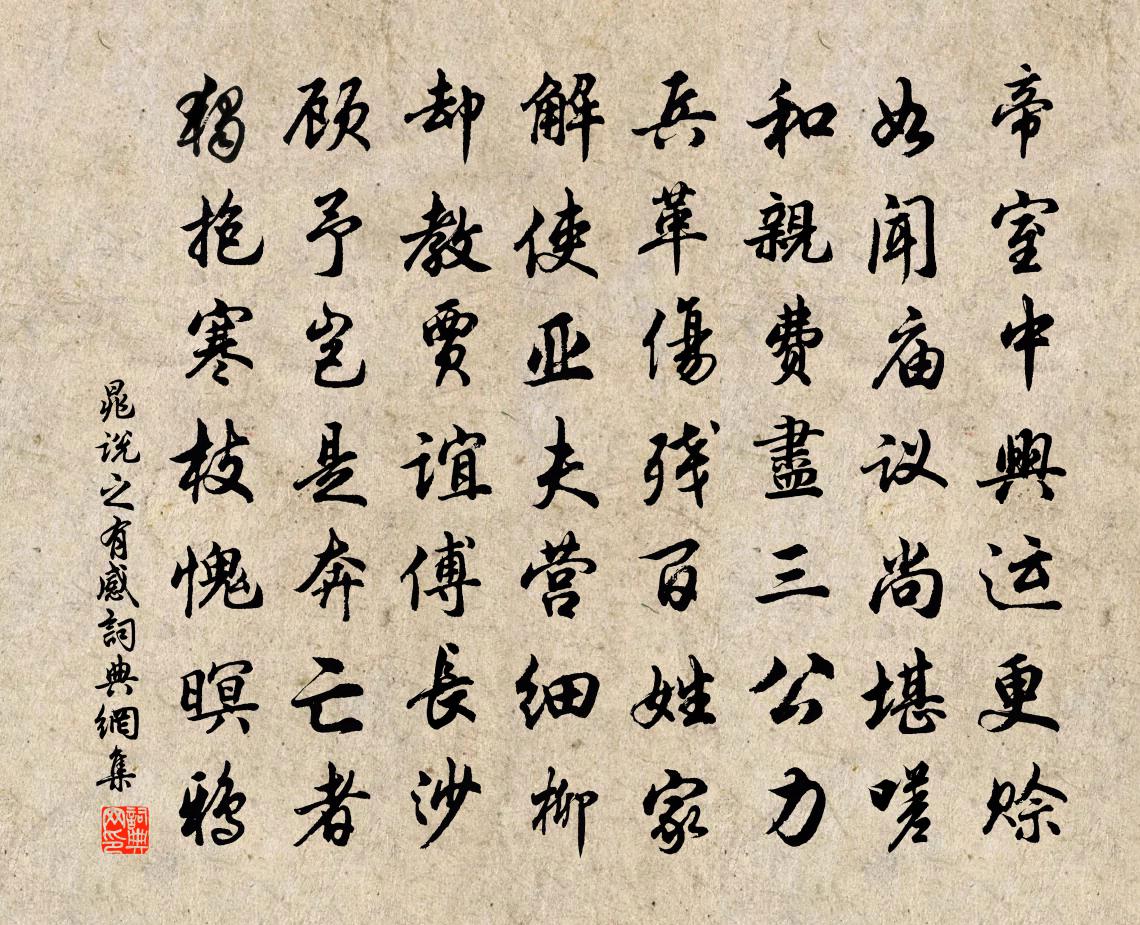 帝室中興运更赊
如闻庙议尚堪嗟
和親費盡三公力
兵革傷残百姓家
解使亚夫营细柳
却教賈谊傅長沙
顾予岂是奔亡者
独抱寒枝愧暝鴉
晁说之有感詞典網集
詞典網印